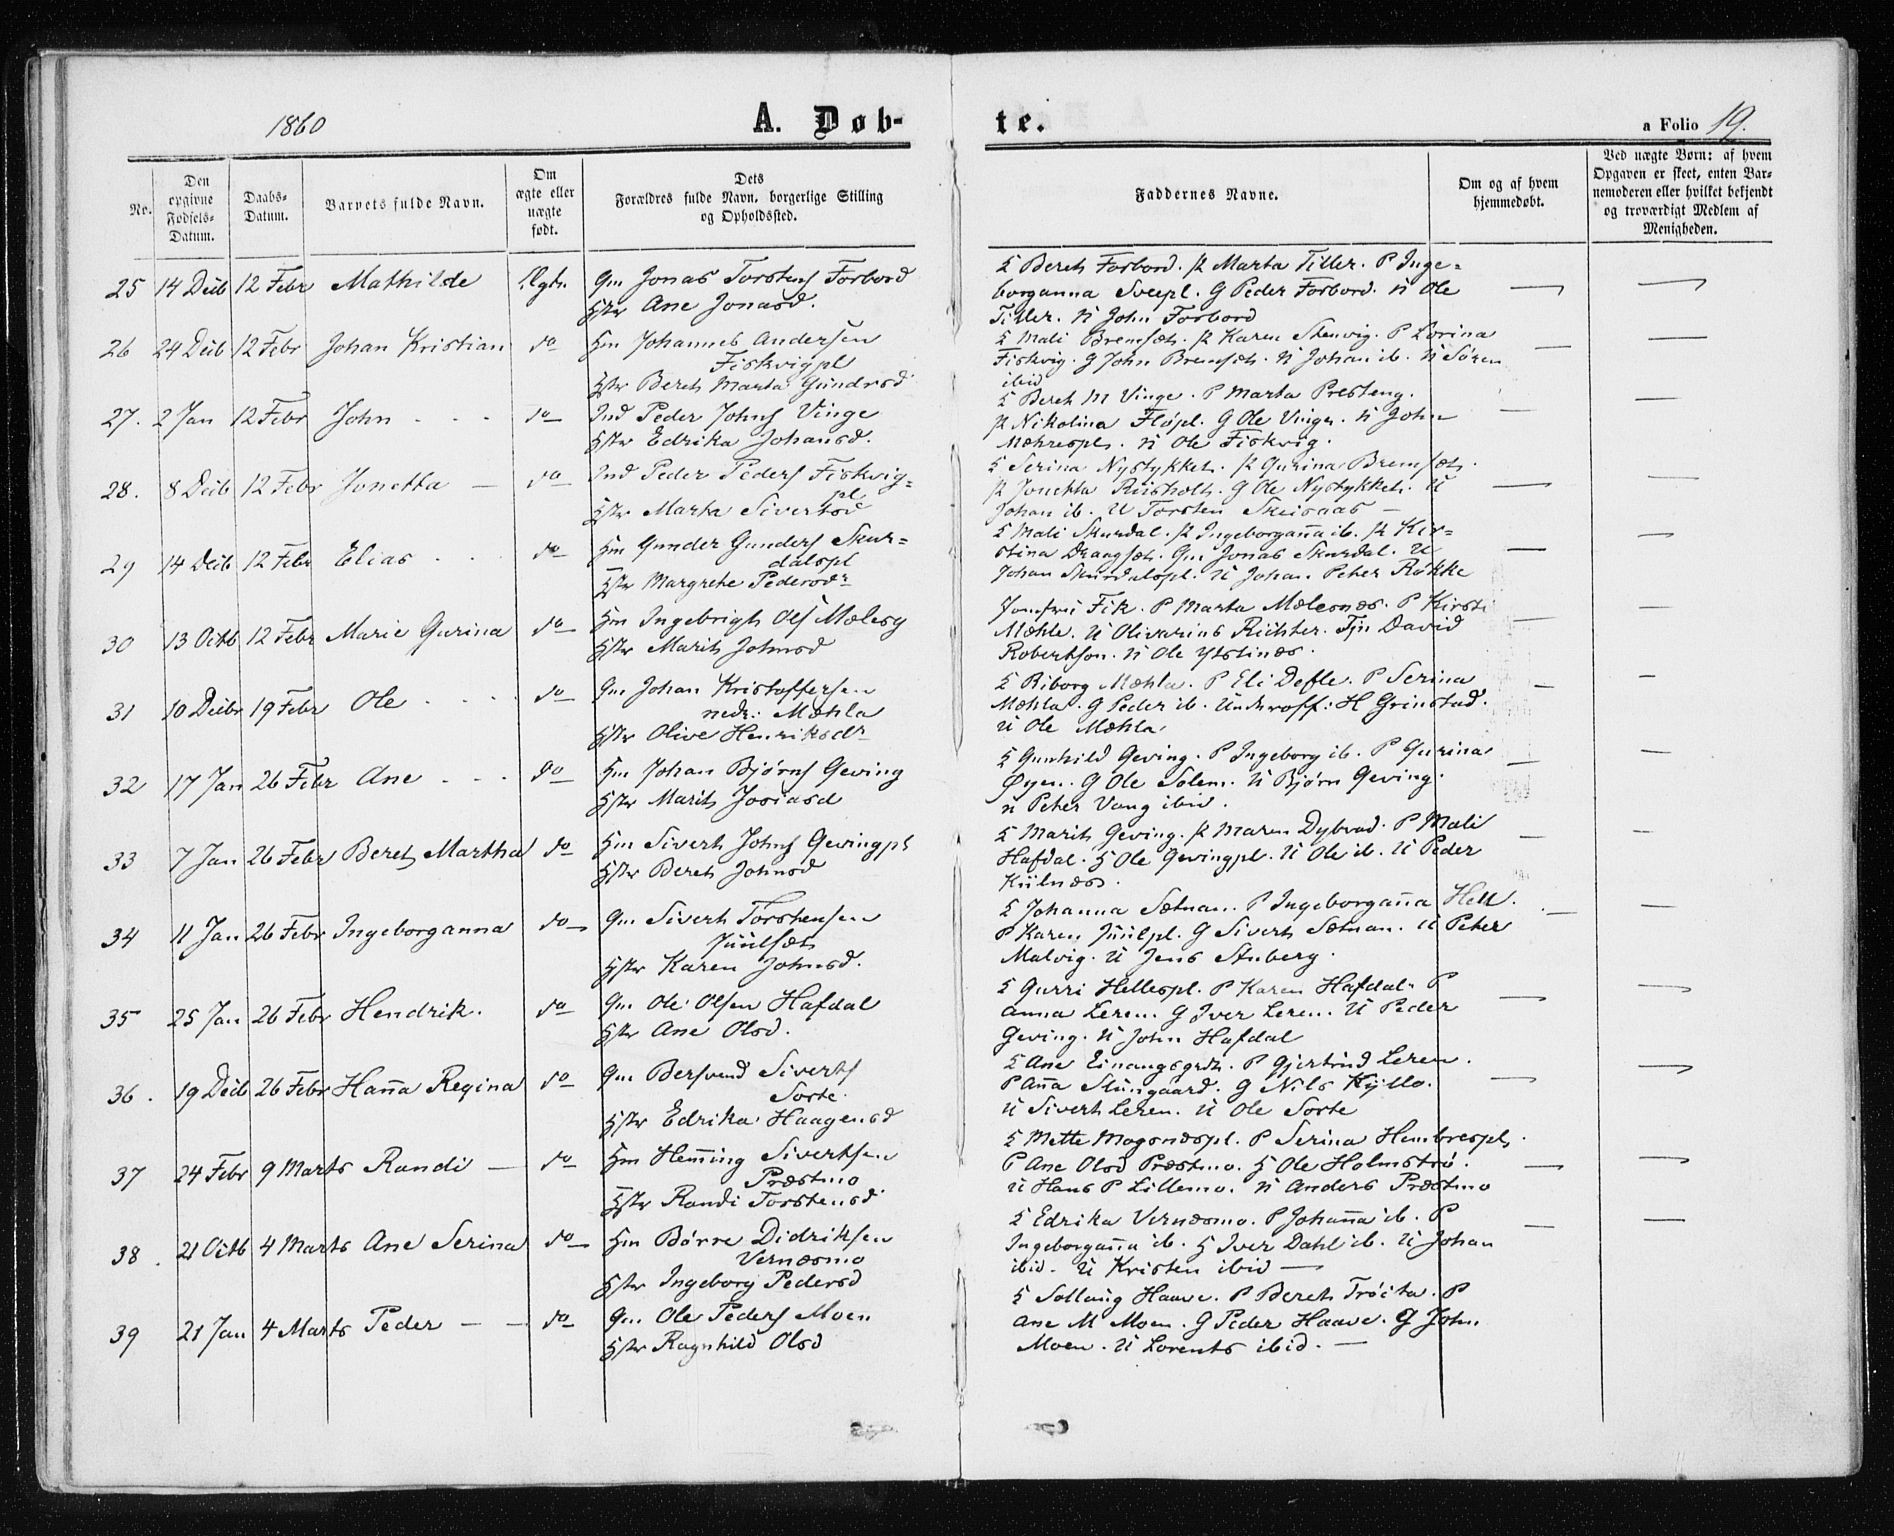 1860
A. Døb-
te.
a Folio 19.
No.
Den
opgivne
Fødsels-
Datum.
Daabs-
Datum.
Barnets fulde Navn.
Om
ægte eller
uægte
født.
Dets
Forældres fulde Navn, borgerlige Stilling
og Opholdssted.
Faddernes Navne.
Om og af hvem
hjemmedøbt.
Ved uægte Børn: af hvem
Opgaven er skeet, enten Bar-
nemoderen eller hvilket bekjendt
og troværdigt Medlem af
Menigheden.
25 14 Decb 12 Febr Mathilde Ægte. Gm Jonas Torstens Forbord
Hstr Ane Jonasd.
K Bereth Forbord. P Marta Tiller. P Inge-
borganna Sveepl. G Peder Forbord. U Ole
Tiller. U John Forbord
26 24 Decb 12 Febr Johan Kristian do Hm Johannes Andersen
Fiskvigpl
Hstr Bereth Marta Gundersd
K Mali Bremsæth. P Karen Stenvig. P Lorina
Fiskvig. G John Bremsæth. U Johan ib. U Sören
ibid
27. 2 Jan 12 Febr John - - do Ind Peder Johns Vinge
Hstr Edrika Johansd.
K Bereth M Vinge. P Marta Presteng.
P Nikolina Fløpl. G Ole Vinge. U John
Mæhrespl. U Ole Fiskvig.
28. 8 Decb 12 Febr Jonetta - do Ind Peder Peders Fiskvig-
pl
Hstr Marta Sivertsd
K Serina Nystykket. P Gurina Bremsæth.
P Jonetta Riisholt. G Ole Nystykket. U
Johan ib. U Torsten Skeisaas -
29 14 Decb 12 Febr Elias - do Hm Gunder Gunders Skur-
dalspl
Hstr Margrethe Pedersdr
K Mali Skurdal. P Ingeborgaña ib. P Kir-
stina Draagsæt. Gm Jonas Skurdal. U
Johan Skurdalspl. U Johan Peter Røkke
30 13 Octb 12 Febr Marie Gurina do Hm Ingebrigt Ols Mælesg
Hstr Marith Johnsd
Jomfru Fik. P Marta Mælesnæs. P Kirsti
Mæhle. U Olivarius Richter. Tjn David
Robertson. U Ole Ytstinæs.
31 10 Decbr 19 Febr Ole - - do Gm Johan Kristoffersen
nedr: Mæhla
Hstr Olive Henriksdr
K Riborg Mæhla. P Eli Defle. P Serina
Mæhla. G Peder ib. Underoff: H Grinstad.
U Ole Mæhla
32 17 Jan 26 Febr Ane - - do Hm Johan Bjørns Geving
Hstr Marith Josiasd
K Gunhild Geving. P Ingeborg ib. P Gurina
Øyen. G Ole Solem. U Bjørn Geving.
U Peter Vang ibid.
33 7 Jan 26 Febr Bereth Martha do Hm Siverth Johns Gevingpl
Hstr Bereth Johnsd
K Marith Geving. P Maren Dybvad. P Mali
Hafdal. H Ole Gevingpl. U Ole ib. U Peder
Kiilnæs.
34 11 Jan 26 Febr Ingeborganna do Gm Siverth Torstensen
Juulsæth
Hstr Karen Johnsd.
K Johanna Sætnan. P Ingeborgaña Hell.
P Karen Juulpl. G Siverth Sætnan. U Peter
Malvig. U Jens Stuberg.
35 25 Jan 26 Febr Hendrik. do Gm Ole Olsen Hafdal
Hstr Ane Olsd.
K Gurri Hellespl. P Karen Hafdal. P
Anna Leren. G Iver Leren. U Peder
Geving. U John Hafdal
36. 19 Decb 26 Febr Haña Regina do Gm Bersvend Siverts
Sorte.
Hstr Edrika Haagensd
K Ane Einangsgrd. P Gjertrud Leren.
P Aña Stungaard. G Nils Kyllo.
U Siverth Leren. U Ole Sorte
37 24 Febr 9 Marts Randi - do Hm Heming Sivertsen
Præstmo
Hstr Randi Torstensd
K Mette Mogsnæspl. P Serina Hembrespl.
P Ane Olsd Præstmo. H Ole Holmstrø.
U Hans P Lillemo. U Anders Præstmo
38. 21 Octb 4 Marts Ane Serina do Hm Børre Didriksen
Vernæsmo
Hstr Ingeborg Pedersd
K Edrika Vernæsmo. P Johaña ib. P
Ingeborgaña ib. H Iver Dahl ib. U Johan
ibid. U Kristen ibid -
39 21 Jan 4 Marts Peder - - do Gm Ole Peders Moen
Hstr Ragnhild Olsd
K Sollaug Haave. P Bereth Trøite. P
Ane M Moen. G Peder Haave. G John
Moen. U Lorents ibid. -